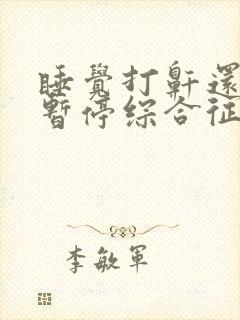 睡覺打鼾還
暫停綜合征
李敏軍